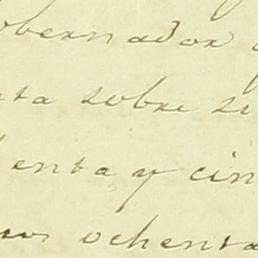 obernador
ta sobre su
enta y cin
os ochenta